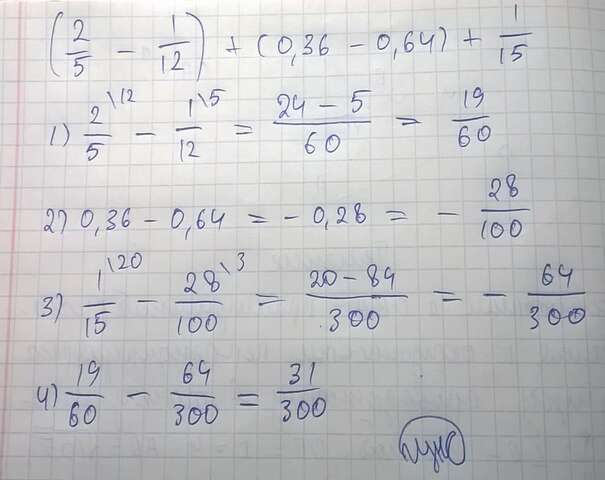 (2/5 - 1/12) + (0,36 - 0,64) + 1/15
1) 2/5 \12 - 1/12 \5 = (24 - 5)/60 = 19/60
2) 0,36 - 0,64 = - 0,28 = - 28/100
3) 1/15 \20 - 28/100 \3 = (20 - 84)/300 = - 64/300
4) 19/60 - 64/300 = 31/300